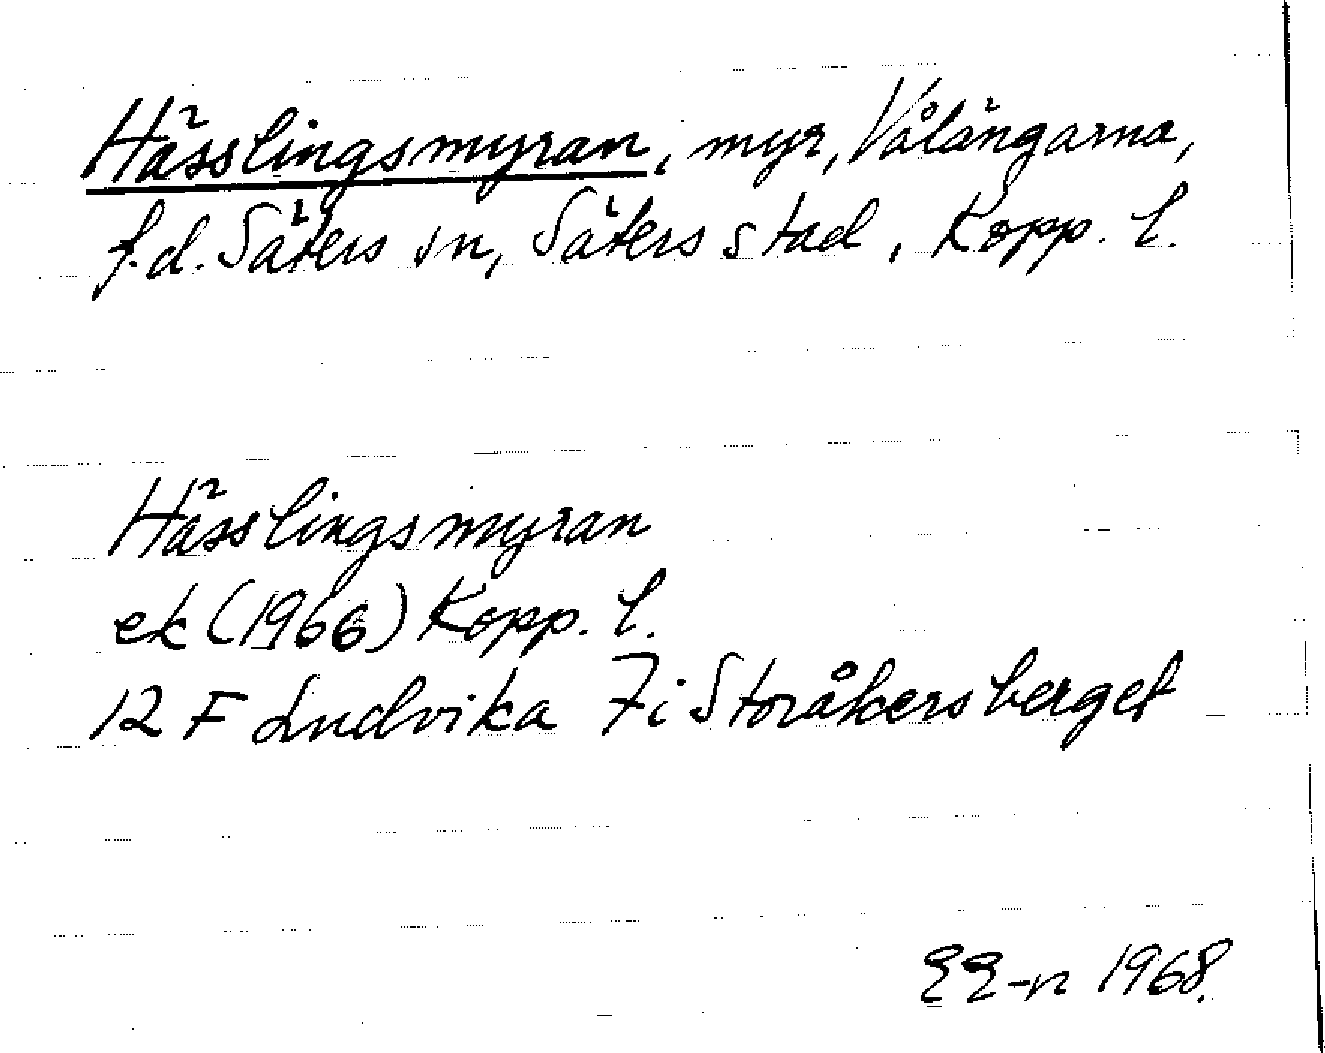 Hässlingsmyran, myr, Vålängarna,
f.d. Säters sn, Säters stad, Kopp. l.
Hässlingsmyran
ek (1966) Kopp. l.
12 F Ludvika 7i Storåkersberget
EE-n 1968.